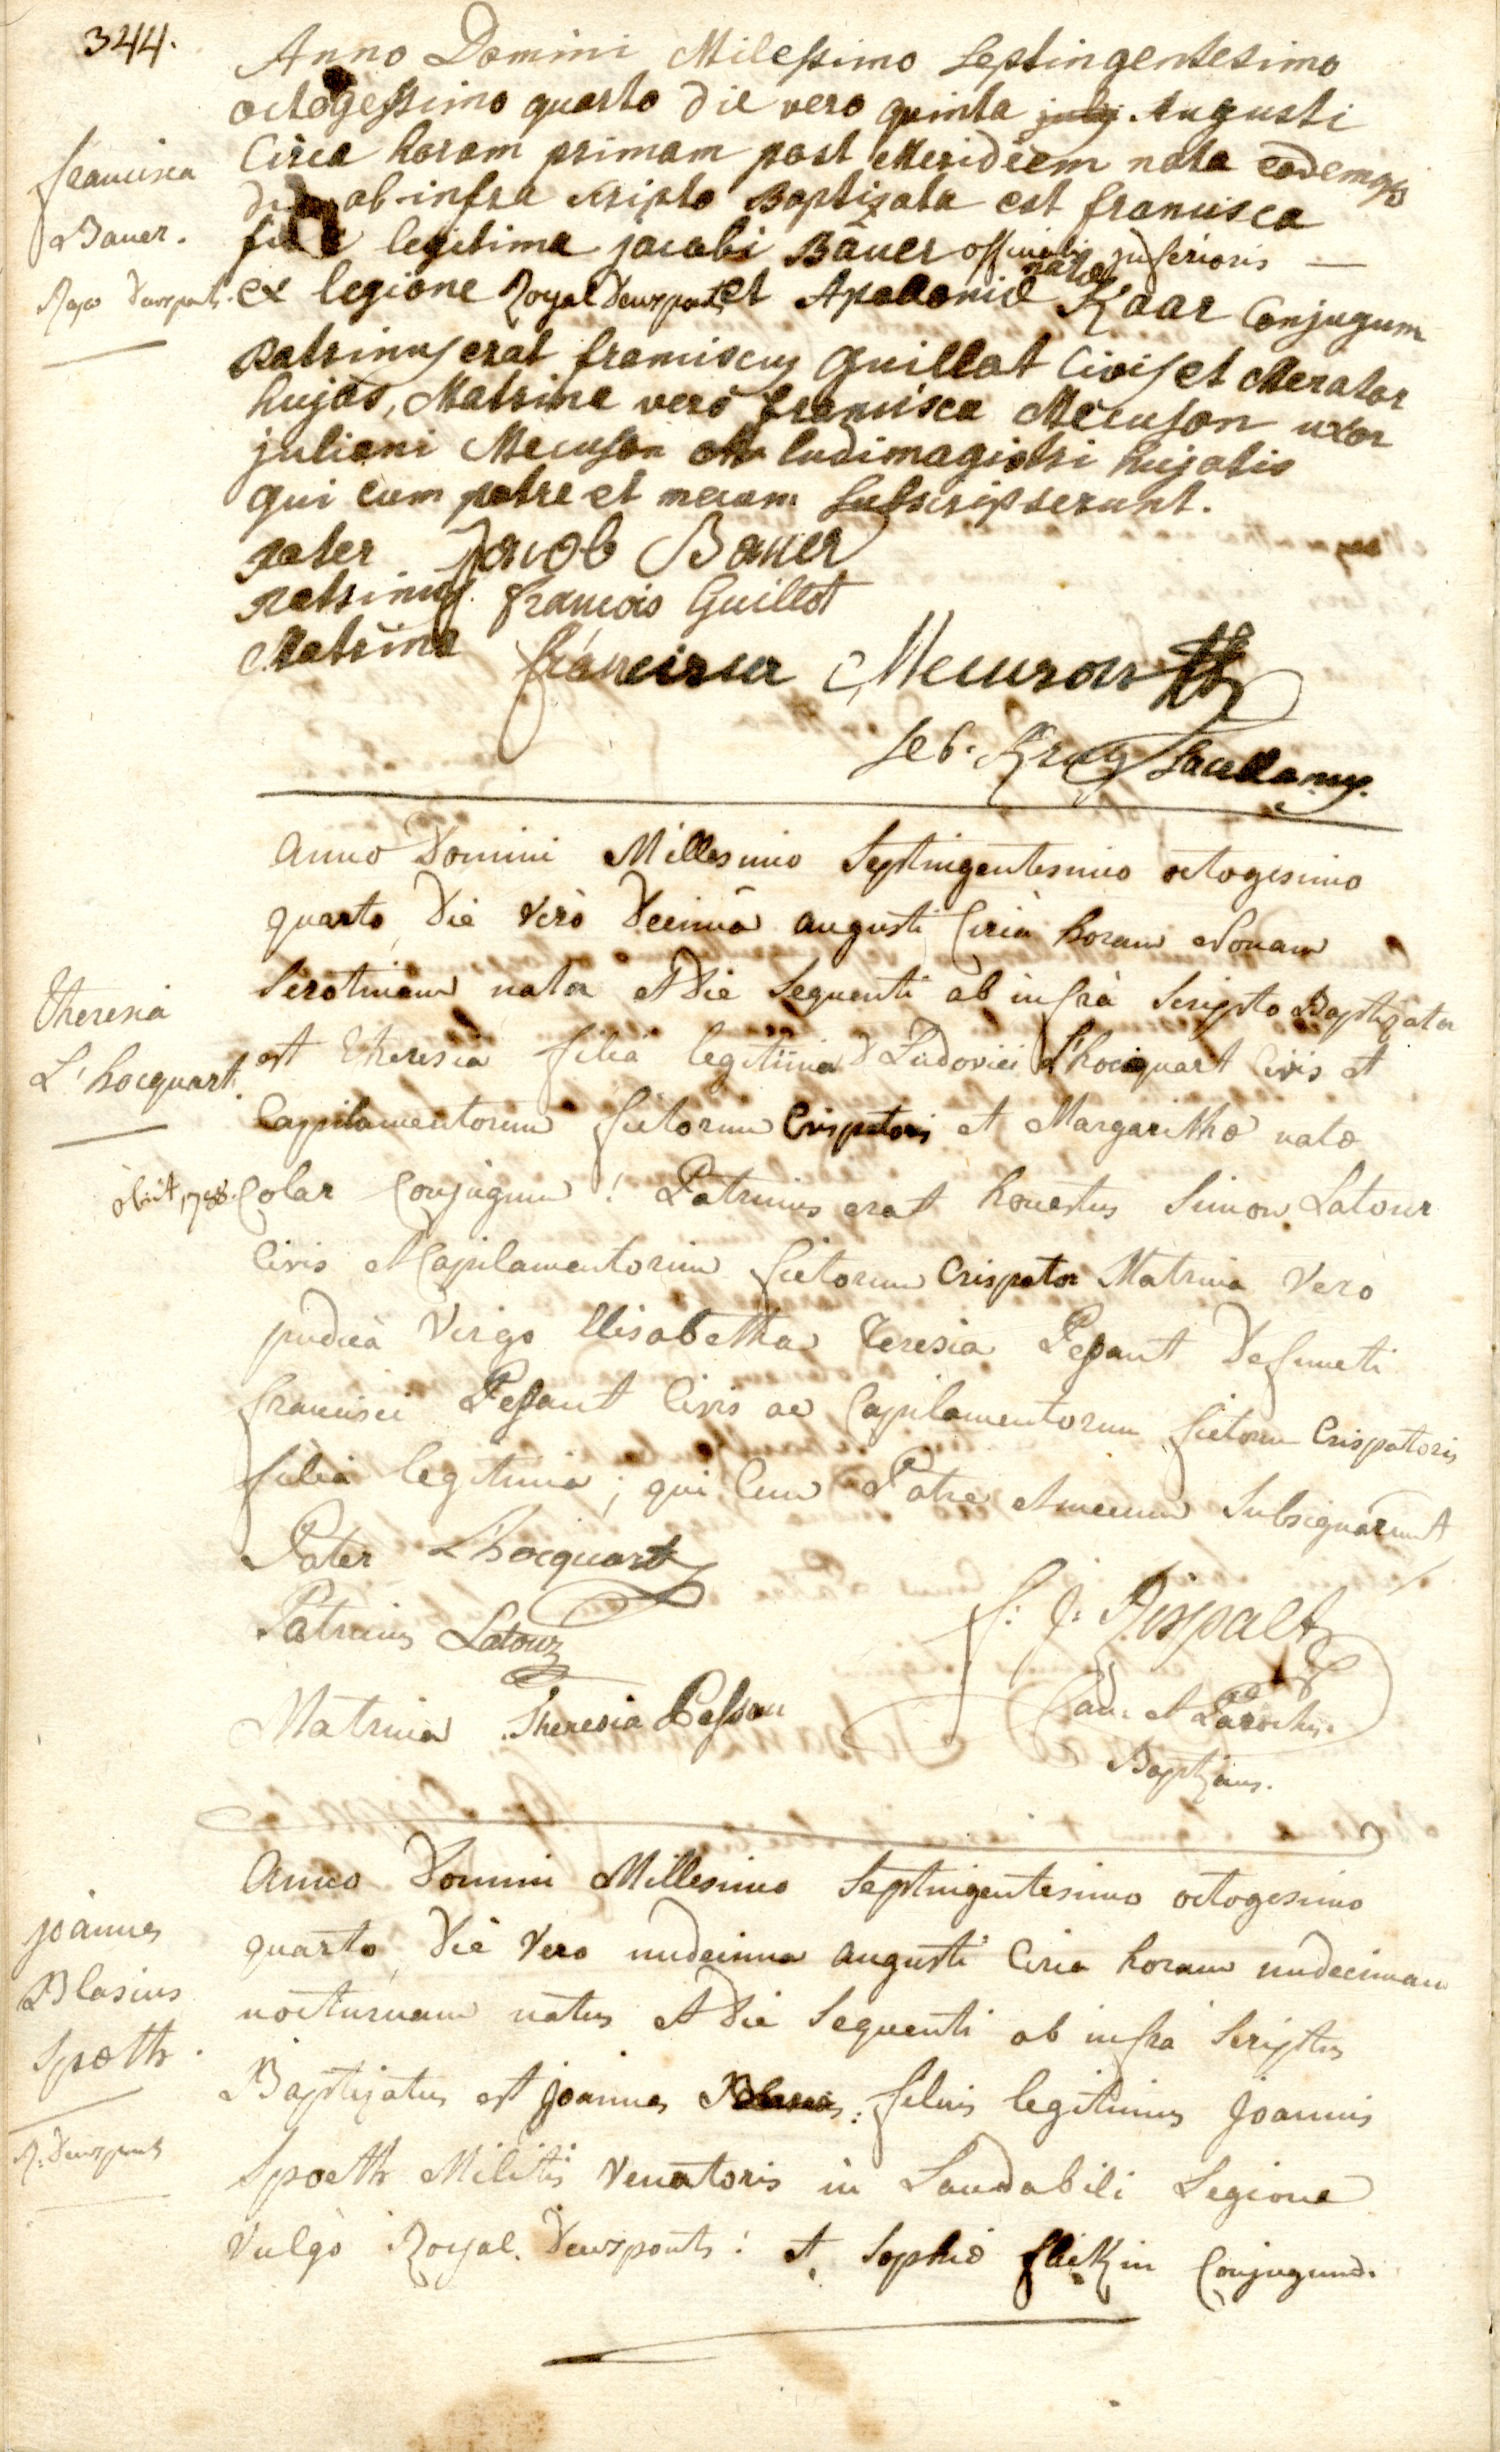 344.
Anno Domini Milessimo septingentesimo
octogessimo quarto die vero quinta july Augusti
Circa horam primam post Meridiem nata eademq̨
die ab infra scripto Baptizata est francisca
filia legitima jacobi Bäuer officialis inferioris —
ex legione Royal Deuxponts et Apolloniæ natæ Kaar Conjugum
patrinus erat franciscus Guillot Civis et Merator
hujas, Matrina verò francisca Mecuson uxor
juliani Mecuson ludimagistri hujatis
qui cum patre et mecum subscripserunt.
francisca
Bauer.
Royo Deuxponts.
pater Jacob Bauer
patrinus. francois Guillot
Matrina francisca Mecuron
seb. Krug sacellanus.
Anno Domini Millesimo Septingentesimo octogesimo
quarto, Die Verò Decimâ augusti Circà horam Nonam
Serotinam nata et Die Sequenti ab infrà Scripto Baptizata
est Theresia filia legitima Ludovici L'hocquart Civis et
Capilamentorum fictorum Crispatoris et Margarithæ natæ
Colar Conjugum! Patrinus erat honestus Simon Latour
Civis et Capilamentorum fictorum Crispator Matrina Vero
pudica Virgo Elisabetha Teresia Pesant Defuncti
francisci Pessant Civis ac Capilamentorum fictorum Crispatoris
filia legitima; qui Cum Patre et mecum Subsignarunt
Theresia
L'hocquart.
obiit 1788.
Pater L'hocquart
Patrinus Latour
Matrina Theresia Pessan
f: J: Dispalt
Can. et Parochus.
Baptizans.
Anno Domini Millesimo Septingentesimo octogesimo
quarto, Die Vero undecima augusti Circa horam undecimam
nocturnam natus et Die Sequenti ab infra Scriptus
Baptizatus est joannes Blasius: filius legitimus Joannis
Spoeth Militis Venatoris in Laudabili Legione
Vulgò Royal. Deuxponts! et Sophiæ flickin Conjugum.
joannes
Blasius
Spoeth.
R: Deuxponts